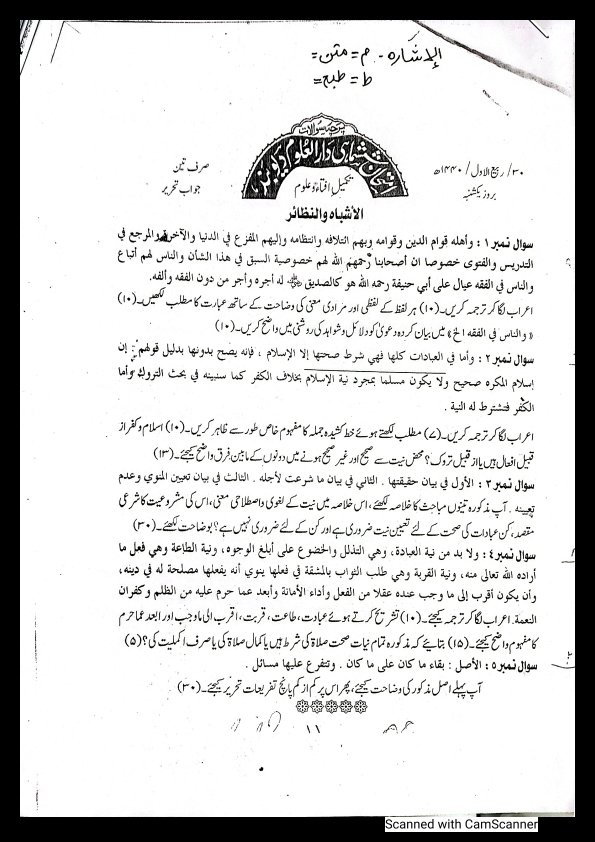 الإشارہ - م = متن =
ط = طبع =
پرچہ سوالات
امتحان ششماہی دارالعلوم دیوبند
تکمیل افتاء و علوم
۳۰/ ربیع الاول / ۱۴۴۰ھ
بروز یکشنبہ
صرف تین
جواب تحریر
الأشباه والنظائر
سوال نمبر ۱ : وأهله قوام الدين وقوامه وبهم ائتلافه وانتظامه وإليهم المفزع في الدنيا والآخرة والمرجع في
التدريس والفتوى خصوصا ان أصحابنا رحمهم الله لهم خصوصية السبق في هذا الشأن والناس لهم أتباع
والناس في الفقه عيال على أبي حنيفة رحمه الله هو كالصديق ﷺ له أجره وأجر من دون الفقه وألفه.
اعراب لگا کر ترجمہ کریں۔ (۱۰) ہر لفظ کے لفظی اور مرادی معنی کی وضاحت کے ساتھ عبارت کا مطلب لکھیں۔ (۱۰)
«والناس في الفقه الخ» میں بیان کردہ دعویٰ کو دلائل و شواہد کی روشنی میں واضح کریں۔ (۱۰)
سوال نمبر ۲ : وأما في العبادات كلها فهي شرط صحتها إلا الإسلام ، فإنه يصح بدونها بدليل قولهم : إن
إسلام المكره صحيح ولا يكون مسلما بمجرد نية الإسلام بخلاف الكفر كما سنبينه في بحث التروك وأما
الكفر فتشترط له النية .
اعراب لگا کر ترجمہ کریں۔ (۷) مطلب لکھتے ہوئے خط کشیدہ جملہ کا مفہوم خاص طور سے ظاہر کریں۔ (۱۰) اسلام و کفر از
قبیل افعال ہیں یا از قبیل تروک؟ محض نیت سے صحیح اور غیر صحیح ہونے میں دونوں کے مابین فرق واضح کیجئے۔ (۱۳)
سوال نمبر ۳ : الأول في بيان حقيقتها . الثاني في بيان ما شرعت لأجله . الثالث في بيان تعيين المنوي وعدم
تعيينه . آپ مذکورہ تینوں مباحث کا خلاصہ لکھئے، اس خلاصہ میں نیت کے لغوی و اصطلاحی معنی، اس کی مشروعیت کا شرعی
مقصد، کن عبادات کی صحت کے لئے تعیین نیت ضروری ہے اور کن کے لئے ضروری نہیں ہے؟ بوضاحت لکھئے۔ (۳۰)
سوال نمبر ۴ : ولا بد من نية العبادة، وهي التذلل والخضوع على أبلغ الوجوه، ونية الطاعة وهي فعل ما
أراده الله تعالى منه، ونية القربة وهي طلب الثواب بالمشقة في فعلها ينوي أنه يفعلها مصلحة له في دينه،
وأن يكون أقرب إلى ما وجب عنده عقلا من الفعل وأداء الأمانة وأبعد عما حرم عليه من الظلم وكفران
النعمة. اعراب لگا کر ترجمہ کیجئے۔ (۱۰) تشریح کرتے ہوئے عبادت، طاعت، قربت، اقرب الى ما وجب اور ابعد عما حرم
کا مفہوم واضح کیجئے۔ (۱۵) بتائیے کہ مذکورہ تمام نیات صحت صلاۃ کی شرط ہیں یا کمال صلاۃ کی یا صرف اکملیت کی؟ (۵)
سوال نمبر ۵ : الأصل : بقاء ما كان على ما كان . وتتفرع عليها مسائل .
آپ پہلے اصل مذکور کی وضاحت کیجئے، پھر اس پر کم از کم پانچ تفریعات تحریر کیجئے۔ (۳۰)
۱۱
Scanned with CamScanner